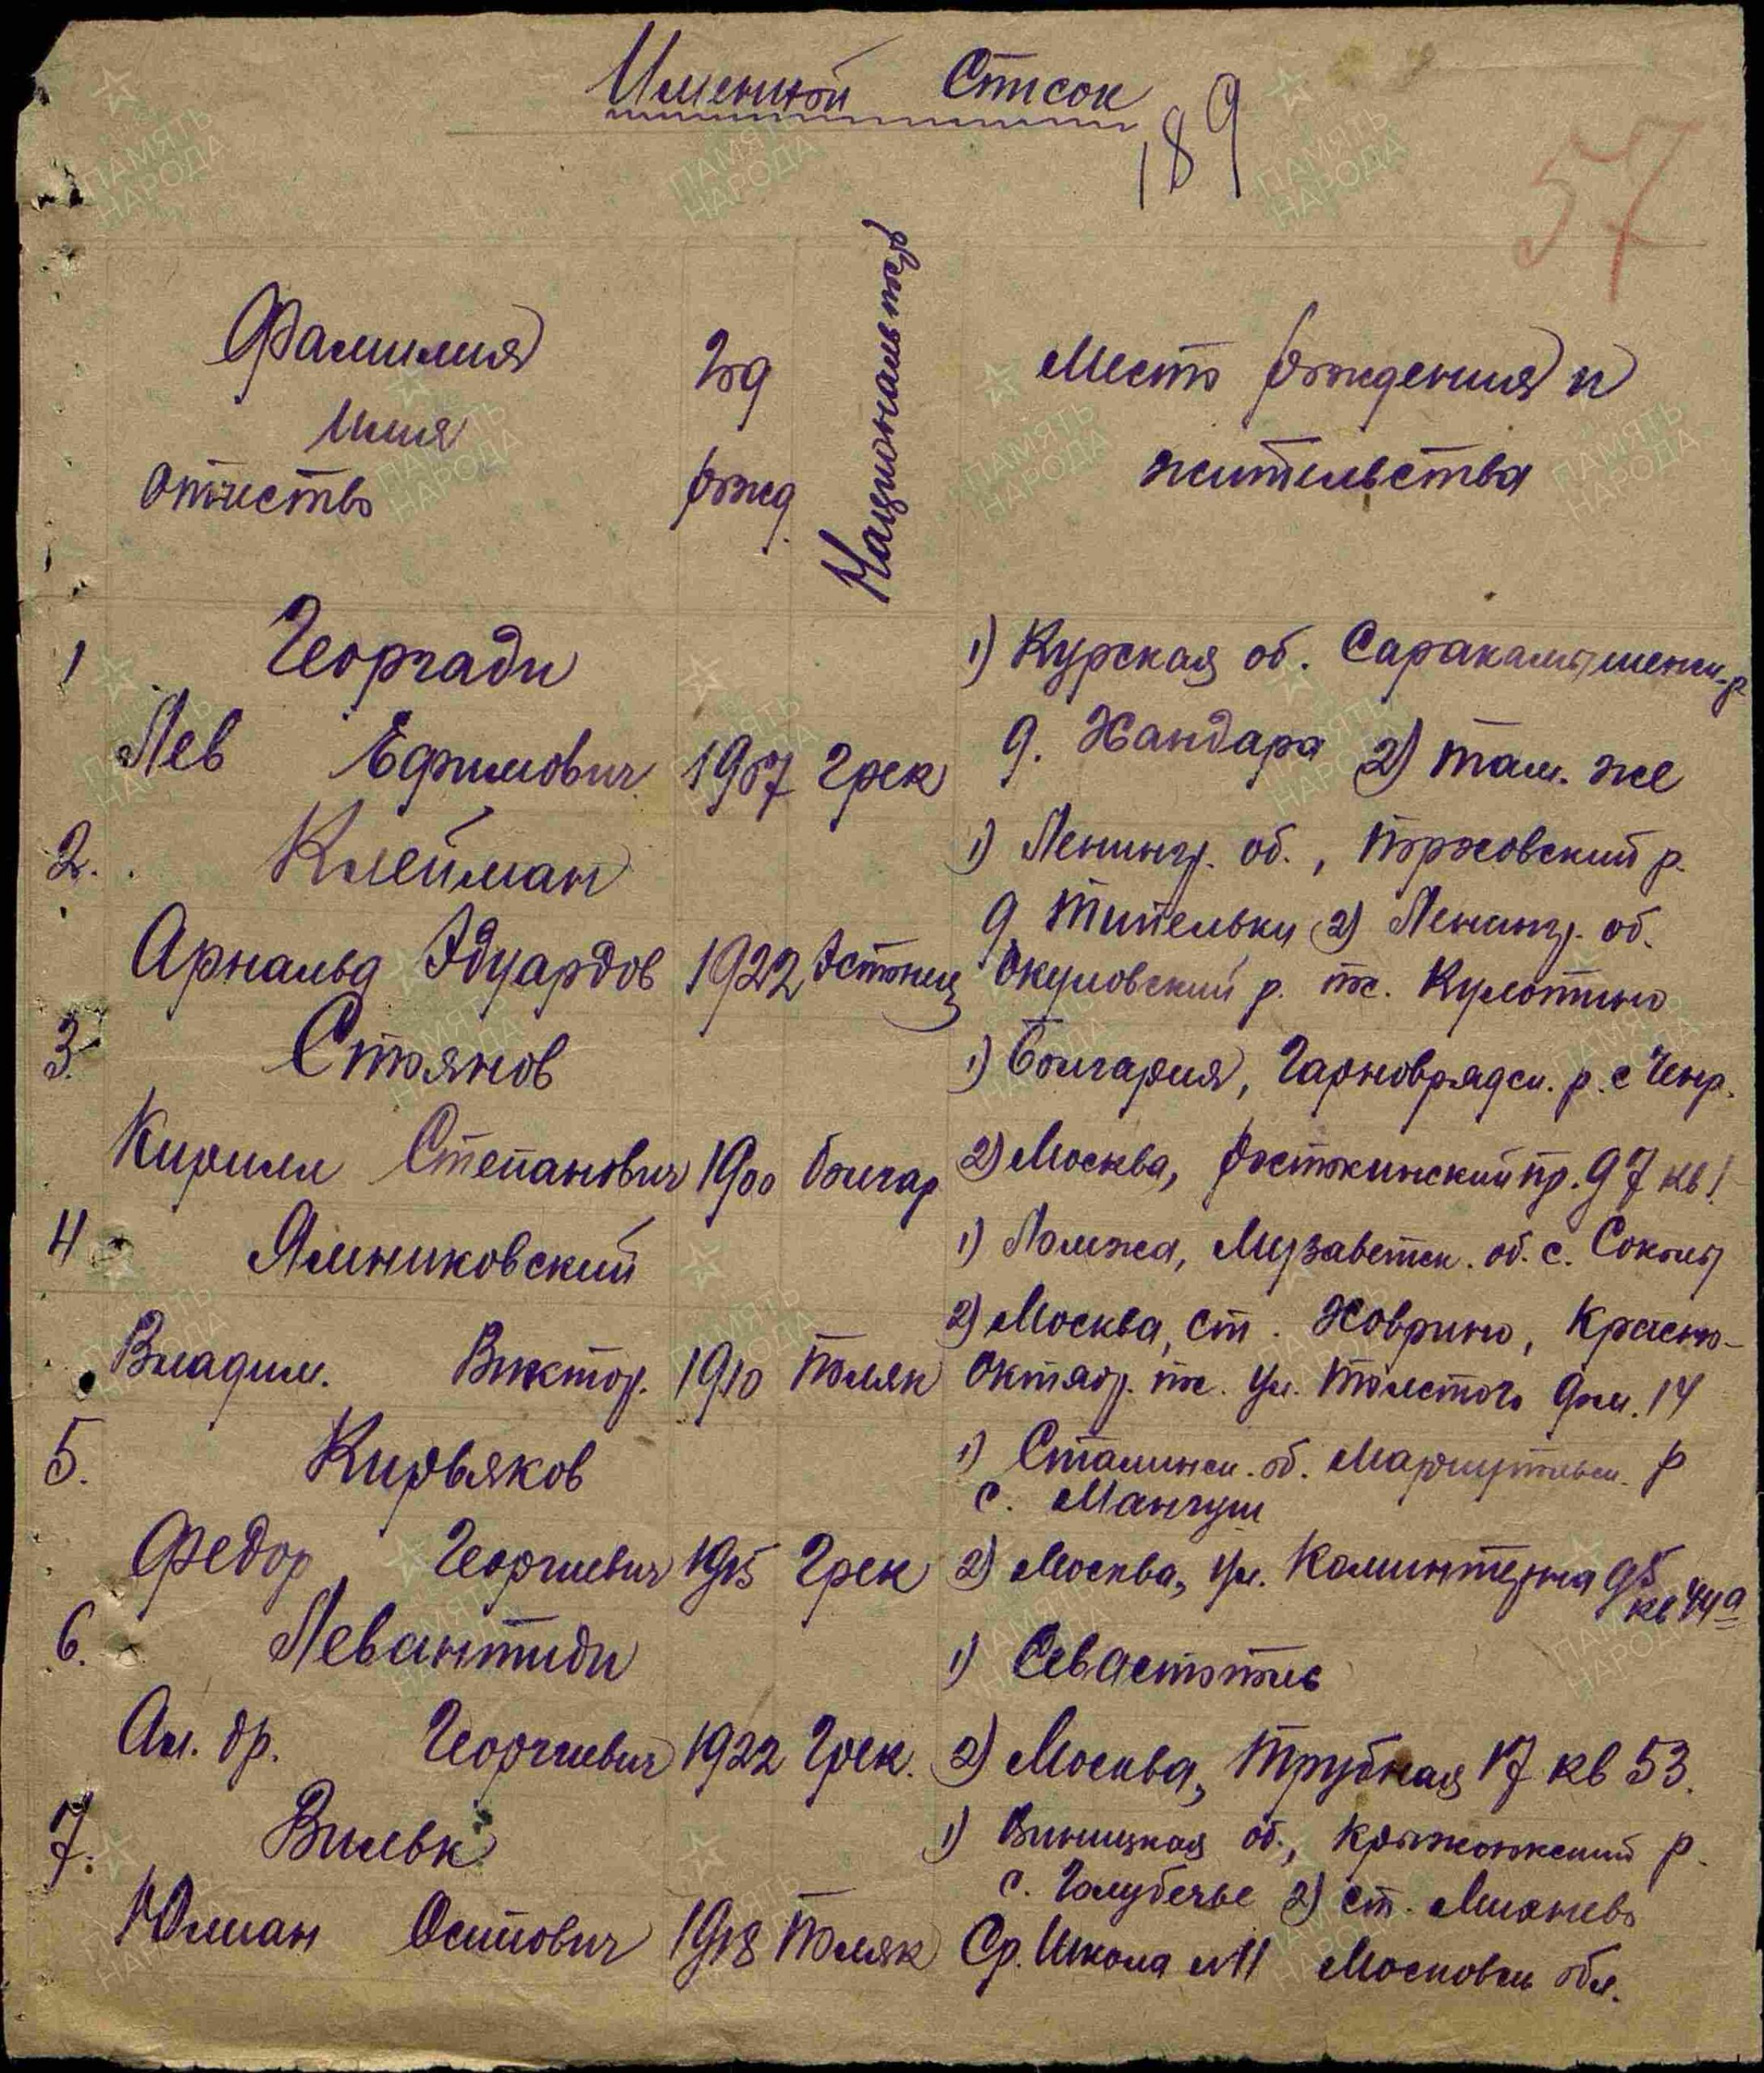 Именной Список
189
57
Фамилия
Имя
Отчество
Год
рожд.
Национальность
Место рождения и
жительства
1 Георгади
Лев Ефимович 1907 Грек
1) Курская об.
д. Хандара 2) там. же
2. Клейман
Арнальд Эдуардов 1922 Эстонец
1) Ленингр. об., Порховский р.
д. 2) Ленингр. об.
Окуловский р. пос. Кулотино
3. Стоянов
Кирилл Степанович 1900 болгар
1) Болгария, р. с
2) Москва, Ростокинский пр. д 7 кв 1.
4 Ямниковский
Владим. Виктор. 1910 поляк
1) Ломжа, об. с. Соколы
2) Москва, ст. Ховрино, Красно-
Октябр. пос. ул. Толстого дом. 14
5. Кирьяков
Федор Георгиевич 1915 Грек
1) Сталинск. об. Мариупольск. р
с. Мангуш
2) Москва, ул. Коминтерна
кв 44а
6. Левантиди
Ал. др. Георгиевич 1922 Грек.
1) Севастополь
2) Москва, Трубная 17 кв 53.
7. Вильк
Юлиан Осипович 1918 Поляк
1) Виницкая об., Крыжопкский р.
с. Голубечье 2) ст. Михнево
Ср. Школа №11 Московск обл.
ПАМЯТЬ
НАРОДА